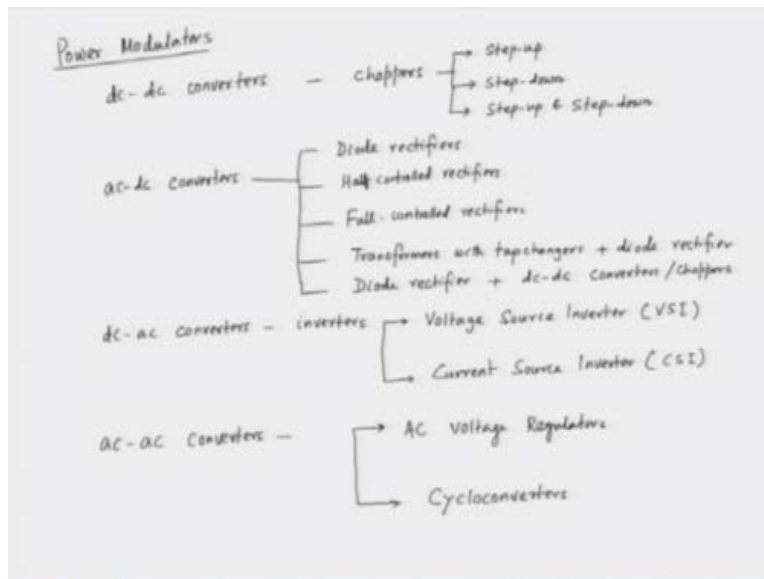 Power Modulators
dc-dc converters - choppers
Step-up
Step-down
Step-up & Step-down
ac-dc converters
Diode rectifiers
Half controlled rectifiers
Full-controlled rectifiers
Transformers with tapchangers + diode rectifier
Diode rectifier + dc-dc converters/choppers
dc-ac converters - inverters
Voltage Source Inverter (VSI)
Current Source Inverter (CSI)
ac-ac converters -
AC Voltage Regulators
Cycloconverters